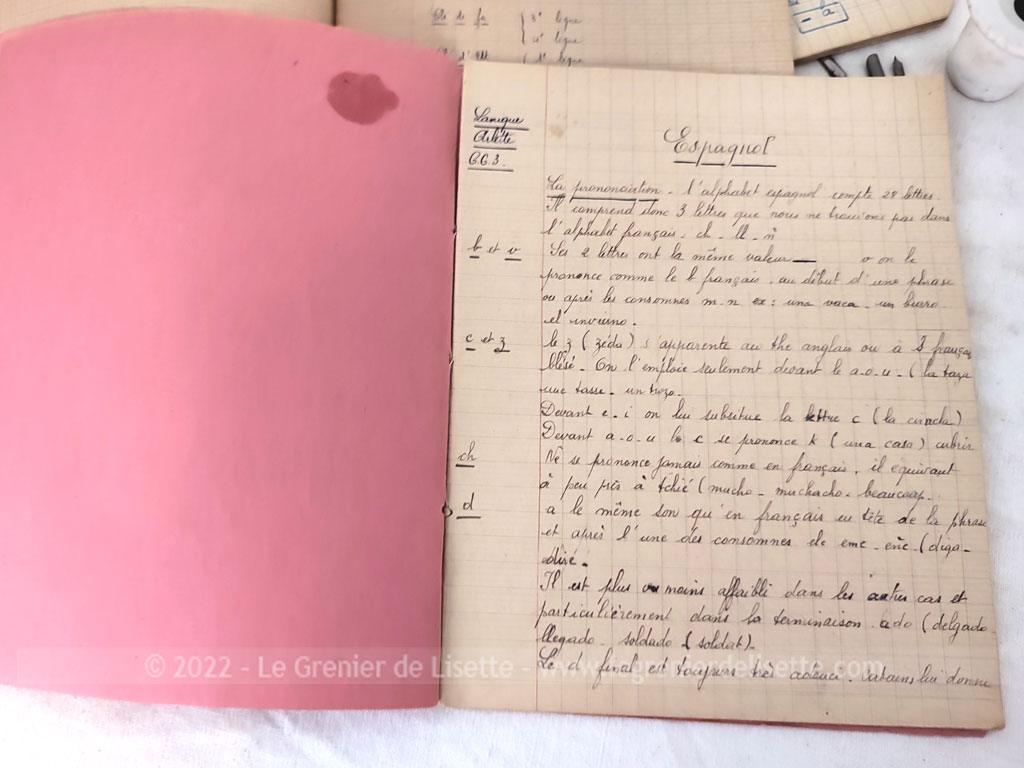 Clé de fa
3e ligne
4e ligne
Larrique
Arlette
C.C.3.
Espagnol
La prononciation - l'alphabet espagnol compte 28 lettres.
Il comprend donc 3 lettres que nous ne trouvons pas dans
l'alphabet français - ch - ll - ñ
b et v Ses 2 lettres ont la même valeur — v on le
prononce comme le b français, au début d'une phrase
ou après les consonnes m-n ex: una vaca - un burro
el invierno.
c et z le z (zéda) s'apparente au the anglais ou à S français
blésé - On l'emploie seulement devant le a-o-u - (la taza
une tasse - un trozo.
Devant e-i on lui subsitue la lettre c (la cincha)
Devant a-o-u le c se prononce k (una casa) cubrir
ch Ne se prononce jamais comme en français, il équivaut
à peu près à tchié (mucho - muchacho - beaucoup.
d a le même son qu'en français en tête de la phrase
et après l'une des consonnes ele eme - eñe - (diga -
diré.
Il est plus ou moins affaibli dans les autres cas et
particulièrement dans la terminaison - ado (delgado
llegado - soldado (soldat) -
Le d final est toujours très adouci - certains lui donne
© 2022 - Le Grenier de Lisette - www.legrenierdelisette.com